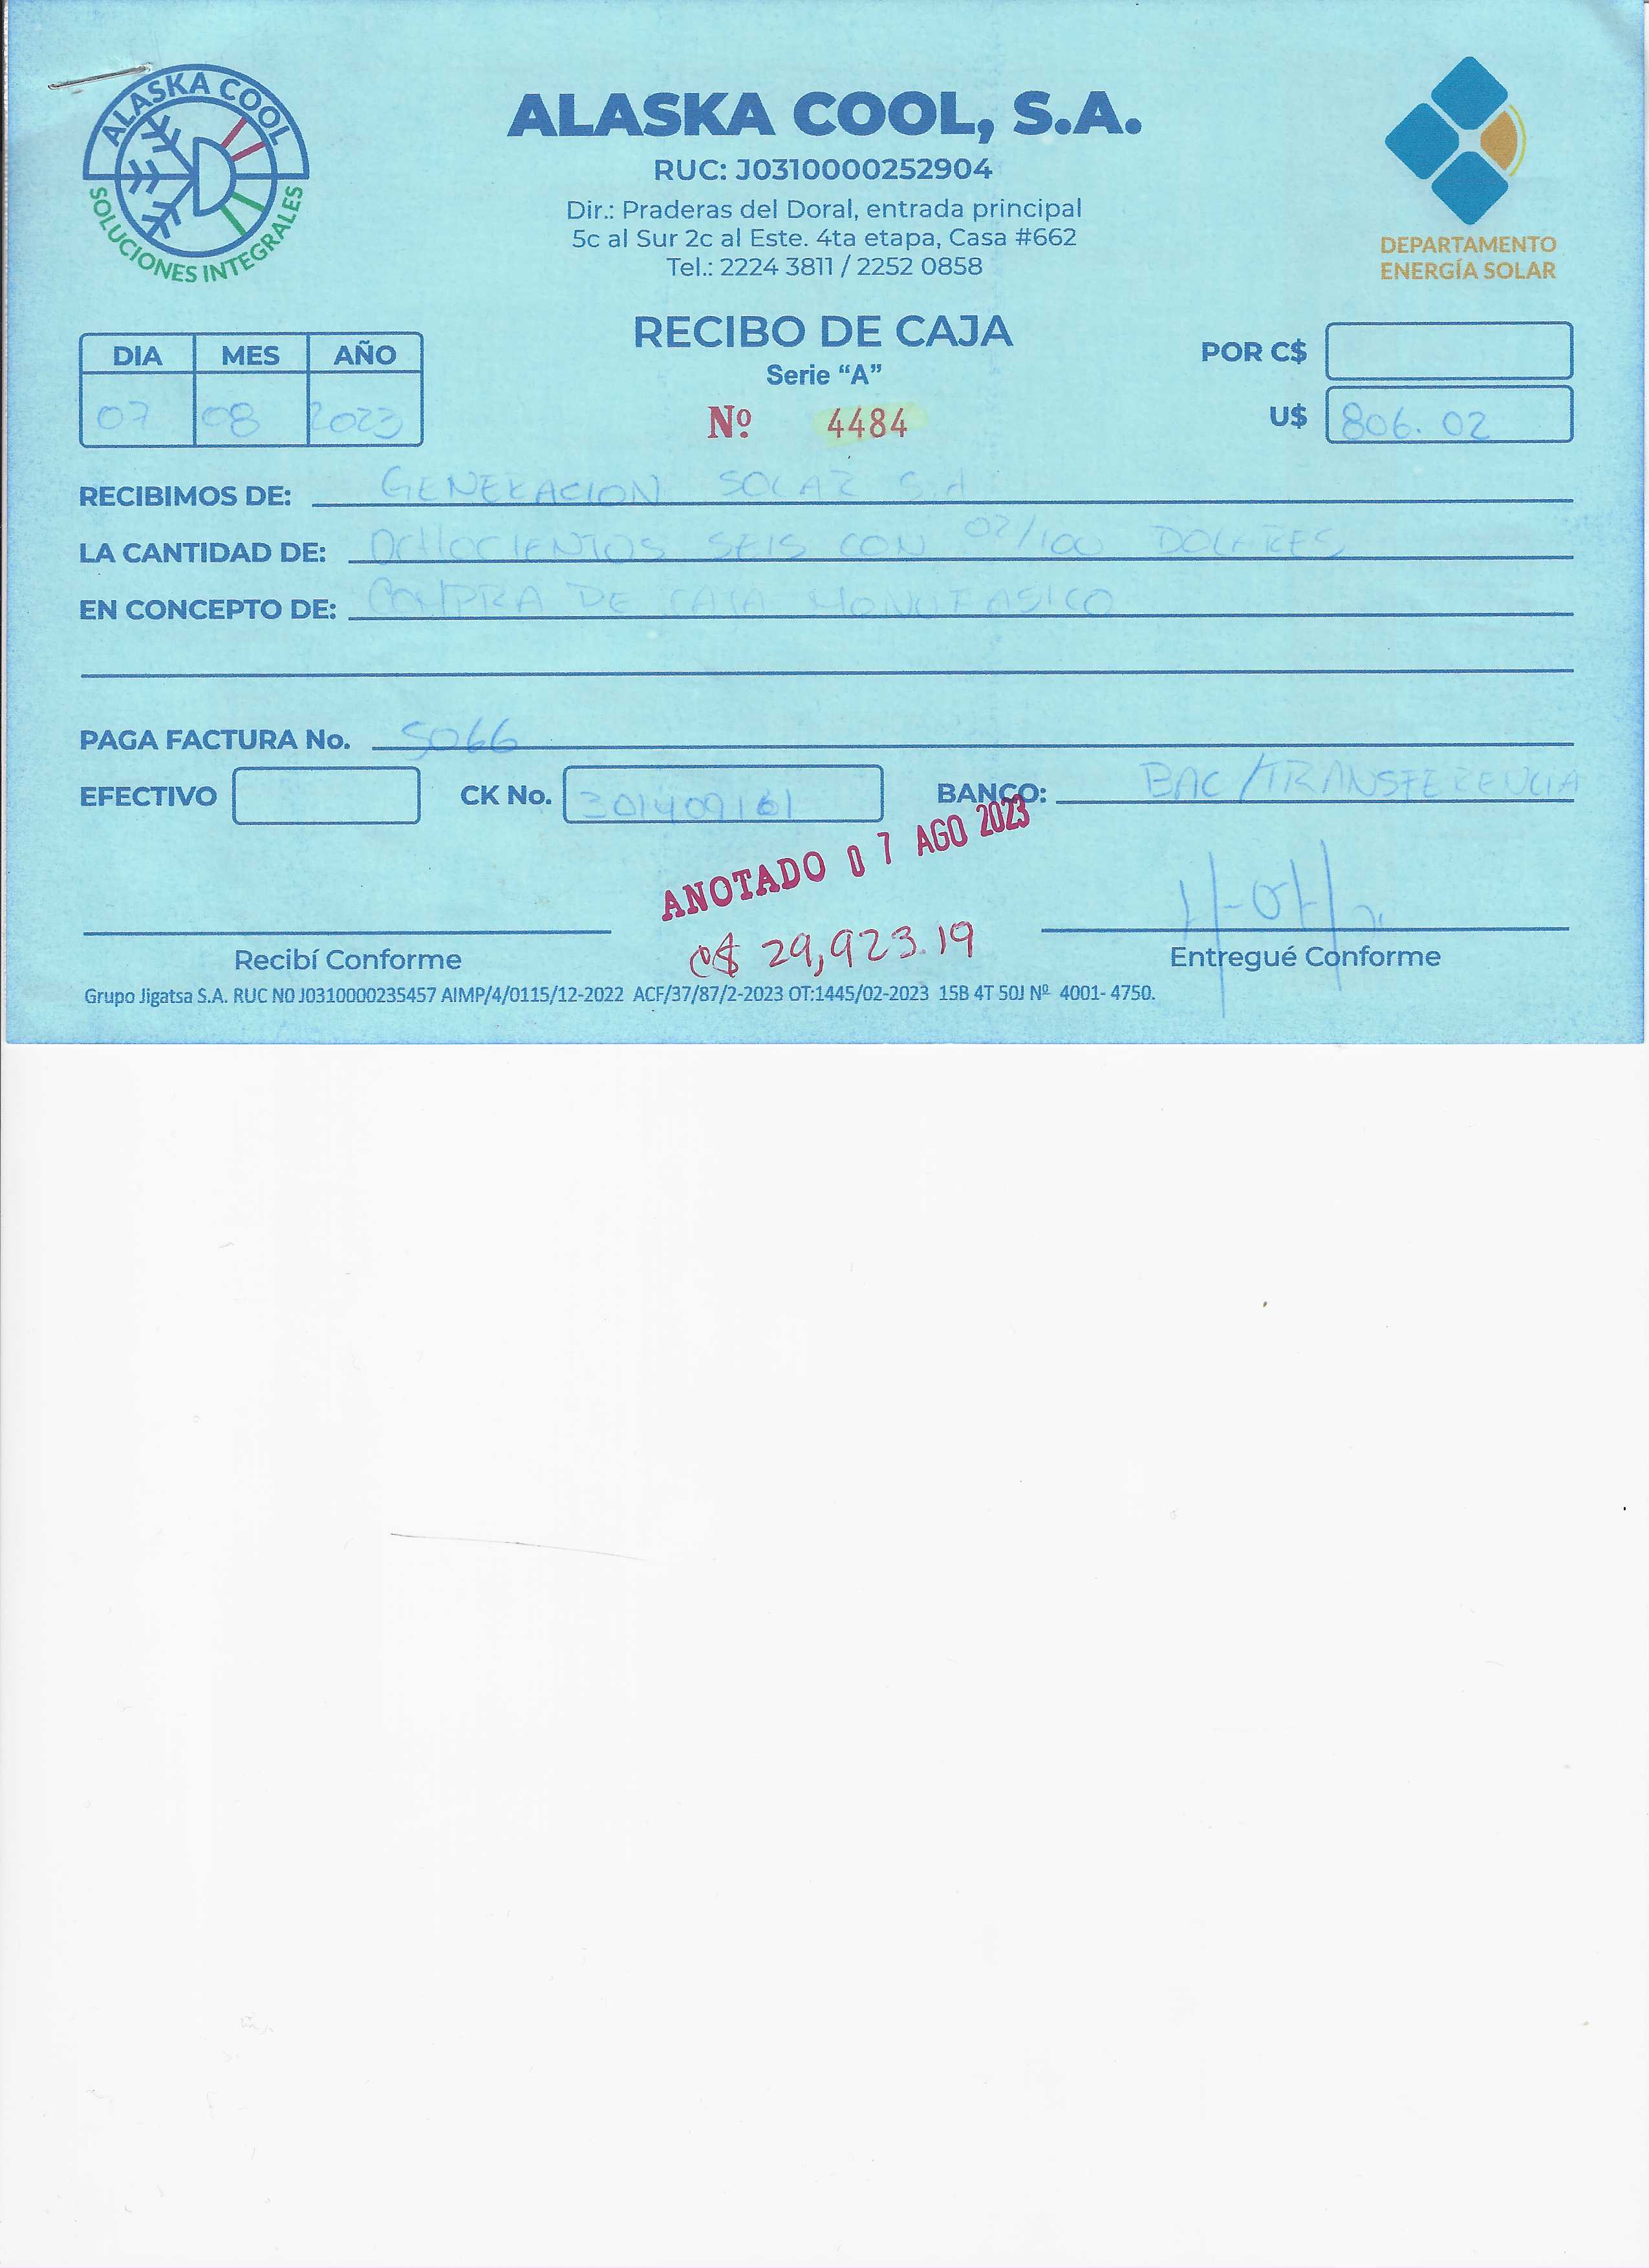 ALASKA COOL
SOLUCIONES INTEGRALES
ALASKA COOL, S.A.
RUC: J0310000252904
Dir.: Praderas del Doral, entrada principal
5c al Sur 2c al Este. 4ta etapa, Casa #662
Tel.: 2224 3811 / 2252 0858
DEPARTAMENTO
ENERGÍA SOLAR
RECIBO DE CAJA
Serie "A"
Nº 4484
DIA MES AÑO
07 08 2023
POR C$
U$ 806.02
RECIBIMOS DE: GENERACION SOLAR S.A
LA CANTIDAD DE: OCHOCIENTOS SEIS CON 02/100 DOLARES
EN CONCEPTO DE: COMPRA DE CAJA MONOFASICO
PAGA FACTURA No. 5066
EFECTIVO CK No. 301409161 BANCO: BAC/TRANSFERENCIA
ANOTADO 07 AGO 2023
C$ 29,923.19
Recibí Conforme
Entregué Conforme
Grupo Jigatsa S.A. RUC N0 J0310000235457 AIMP/4/0115/12-2022 ACF/37/87/2-2023 OT:1445/02-2023 15B 4T 50J Nº 4001- 4750.